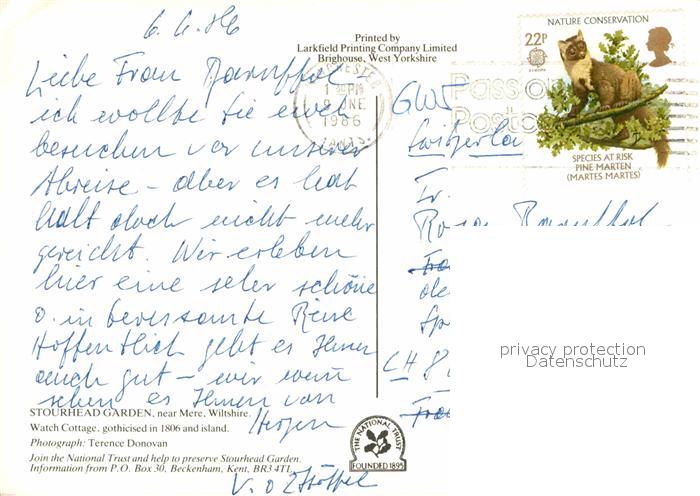 6. 6. 86
Printed by
Larkfield Printing Company Limited
Brighouse, West Yorkshire
NATURE CONSERVATION
22P
EUROPA
SPECIES AT RISK
PINE MARTEN
(MARTES MARTES)
1 30 PM
JUNE
1986
HANTS.
Liebe Frau
ich wollte Sie
besuchen vor unserer
Abreise – aber es hat
halt doch nicht mehr
gereicht. Wir erleben
hier eine sehr schöne
Reise
Hoffentlich geht es Ihnen
auch gut – wir
Ihnen von
Herzen
Switzerla
Fr.
CH 8
privacy protection
Datenschutz
STOURHEAD GARDEN, near Mere, Wiltshire.
Watch Cottage, gothicised in 1806 and island.
Photograph: Terence Donovan
Join the National Trust and help to preserve Stourhead Garden.
Information from P.O. Box 30, Beckenham, Kent, BR3 4TL
THE NATIONAL TRUST
FOUNDED 1895